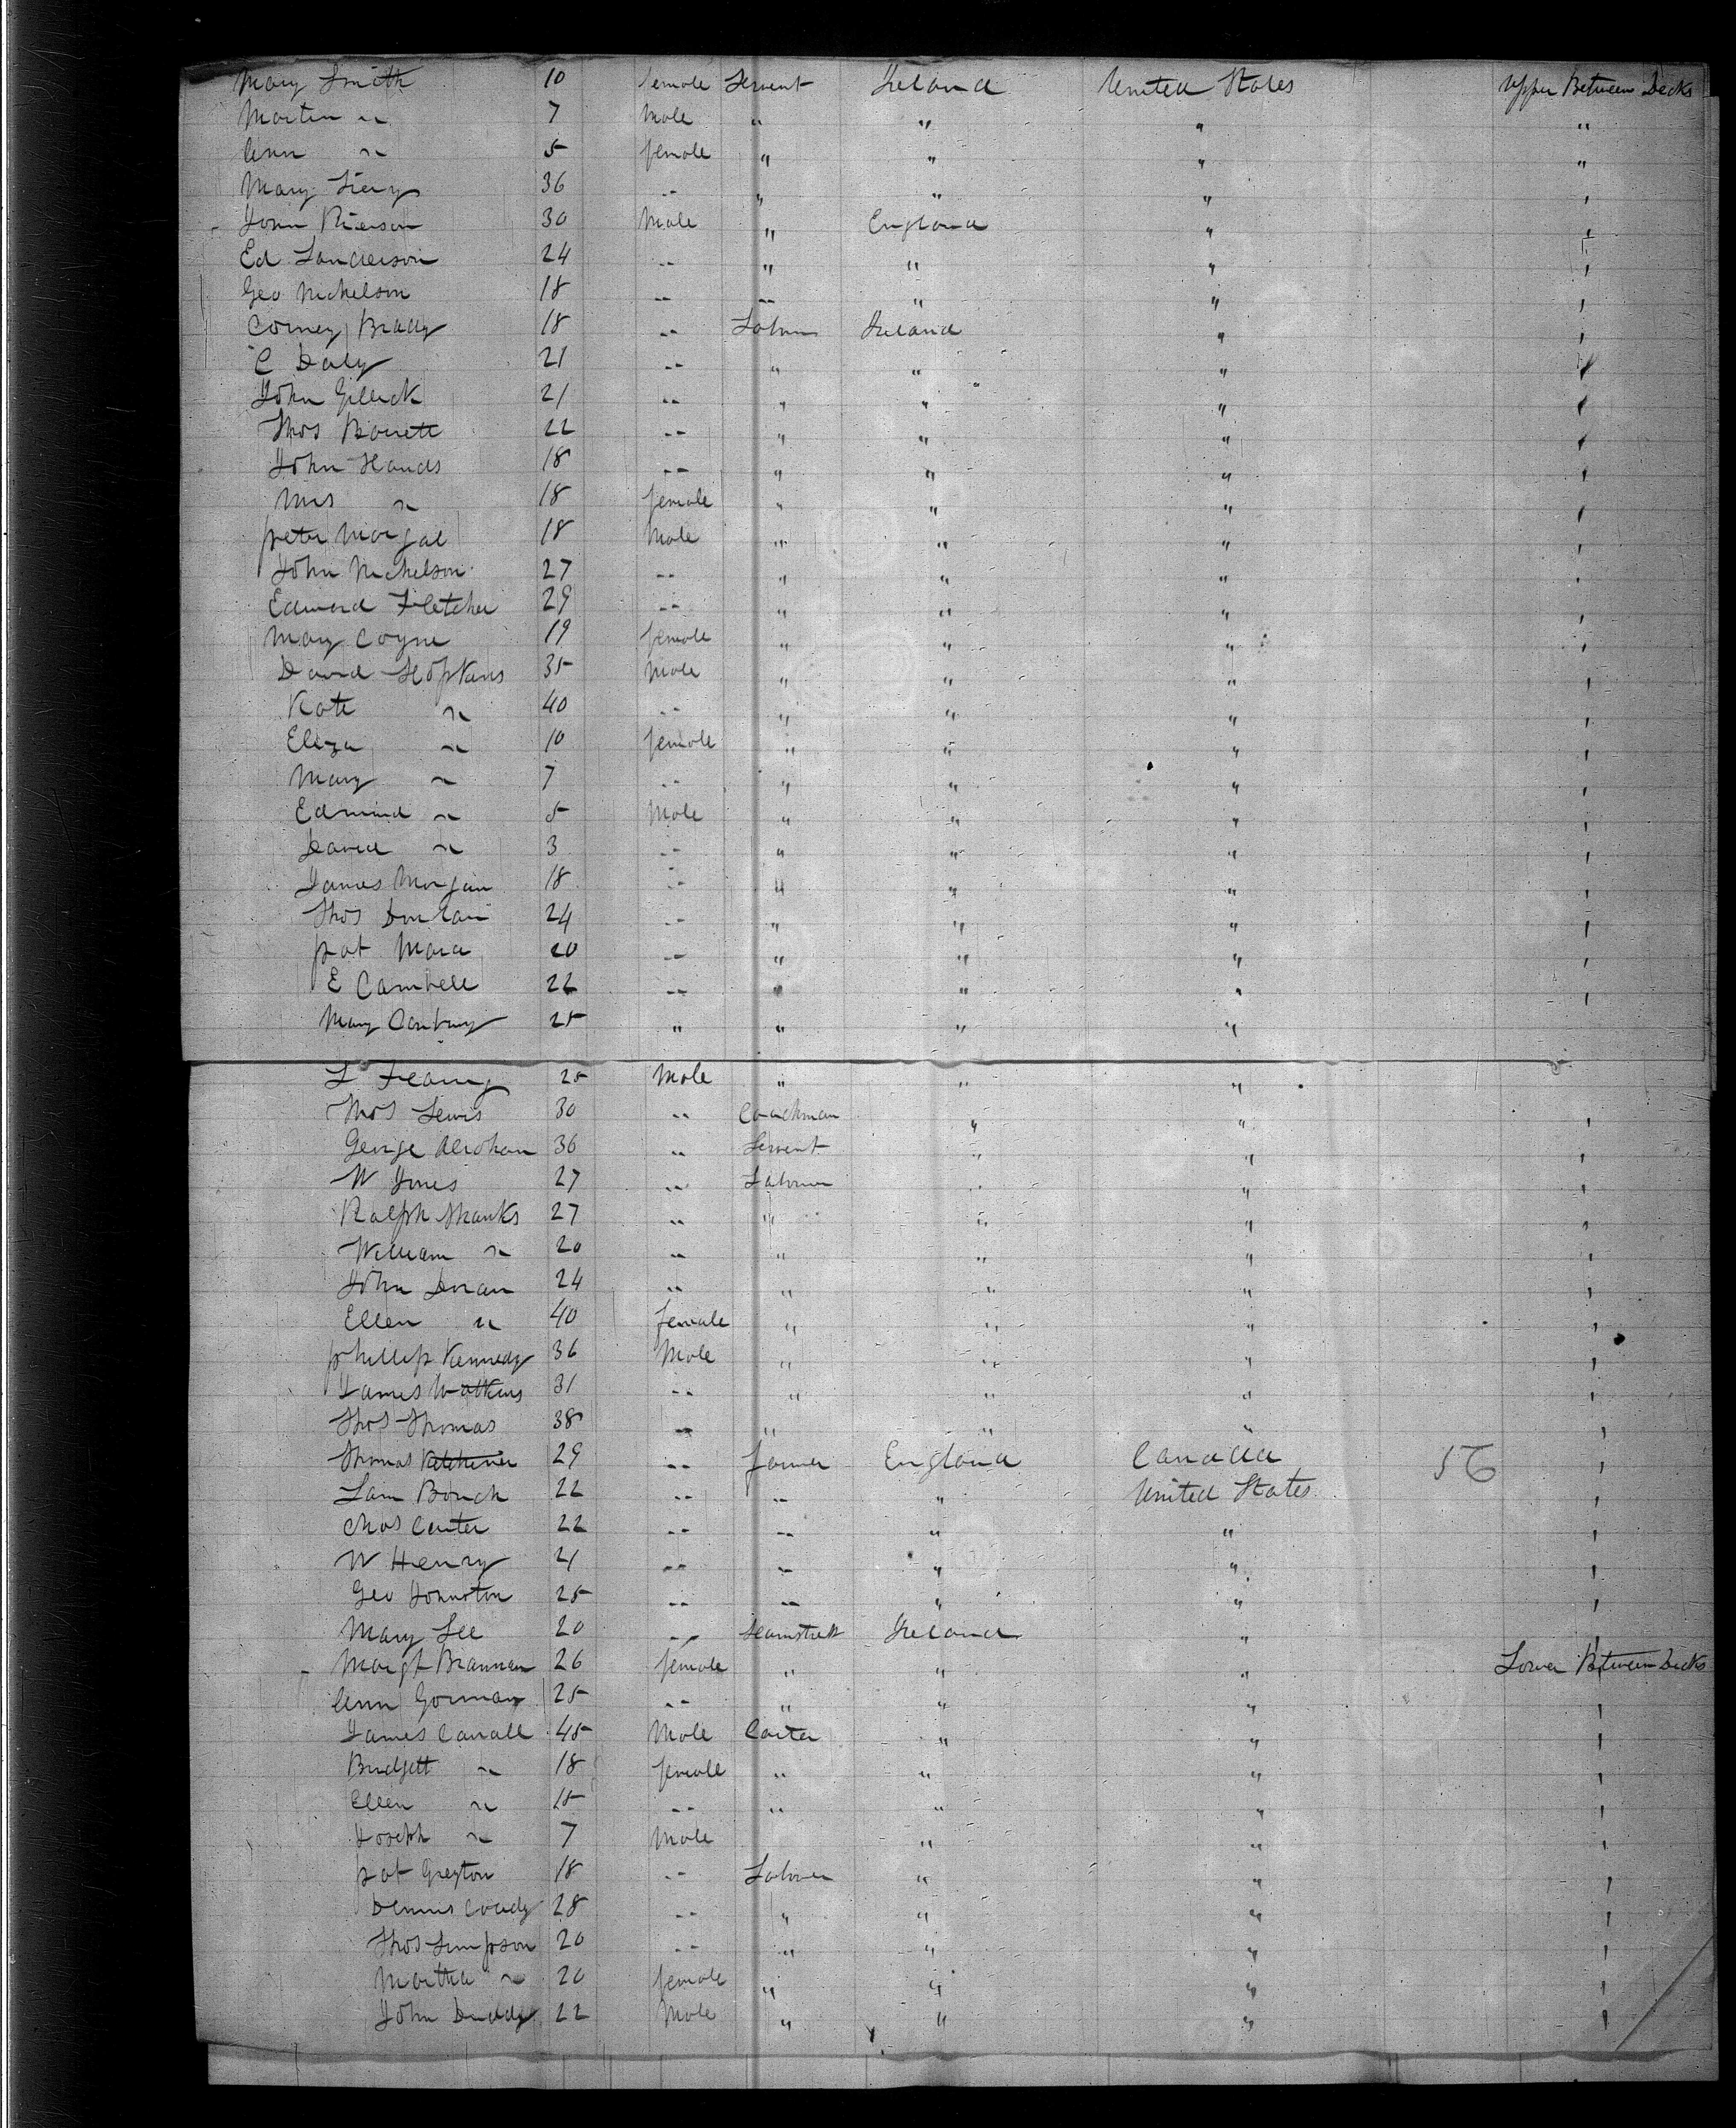 Mary Smith 10 female Servent Ireland United States Upper Between Decks
Martin " 7 Male " " " "
Ann " 5 female " " " "
Mary 36 -- " " " "
John Pierson 30 Male " England " "
Ed Sanderson 24 -- " " " "
Geo Nichelson 18 -- -- " " "
Corney Brady 18 -- Laborer Ireland " "
C Daly 21 -- " " " "
John Gillick 21 -- " " " "
Thos Barrett 22 -- " " " "
John Hands 18 -- " " " "
Mrs " 18 female " " " "
peter Morgal 18 Male " " " "
John Nichelson 27 -- " " " "
Edward Fletcher 29 -- " " " "
Mary Coyne 19 female " " " "
David Hopkins 35 Male " " " "
Kate " 40 -- " " " "
Eliza " 10 female " " " "
Mary " 7 -- " " " "
Edmund " 5 Male " " " "
David " 3 -- " " " "
James Morgan 18 -- " " " "
Thos 24 -- " " " "
pat Mara 20 -- " " " "
E Cambell 22 -- " " " "
Mary 25 " " " "
25 Male " " "
Thos Lewis 30 " Coachman " " "
George 36 " Servent " " "
W Jones 27 " Laborer " " "
Ralph Shanks 27 " " " " "
William " 20 " " " " "
John Doran 24 " " " " "
Ellen " 40 female " " " "
phillip Kennedy 36 Male " " " "
James Watkins 31 -- " " " "
Thos Thomas 38 -- " " " "
Thomas Kitchener 29 -- farmer England Canada 56 "
Sam Bouch 22 -- -- " United States "
Chas Carter 22 -- -- " " "
W Henry 21 -- -- " " "
Geo Johnston 25 -- -- " " "
Mary Lee 20 -- Seamstrett Ireland " "
Margt Brannan 26 female " " " Lower Between Decks
Ann Gorman 25 -- " " " "
James Carroll 45 Male Carter " " "
Bridgett " 18 female " " " "
Ellen " 15 -- " " " "
Joseph " 7 Male " " "
pat Greyton 18 -- Laborer " " "
Dennis Coady 28 -- " " " "
Thos Simpson 20 -- " " " "
Martha " 20 female " " " "
John Duddy 22 Male " " " "